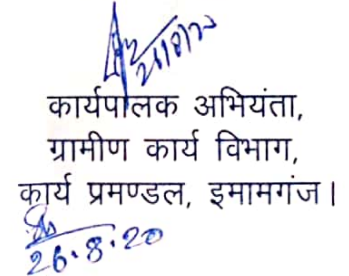 कार्यपालक अभियंता,
ग्रामीण कार्य विभाग,
कार्य प्रमण्डल, इमामगंज।
26.8.20